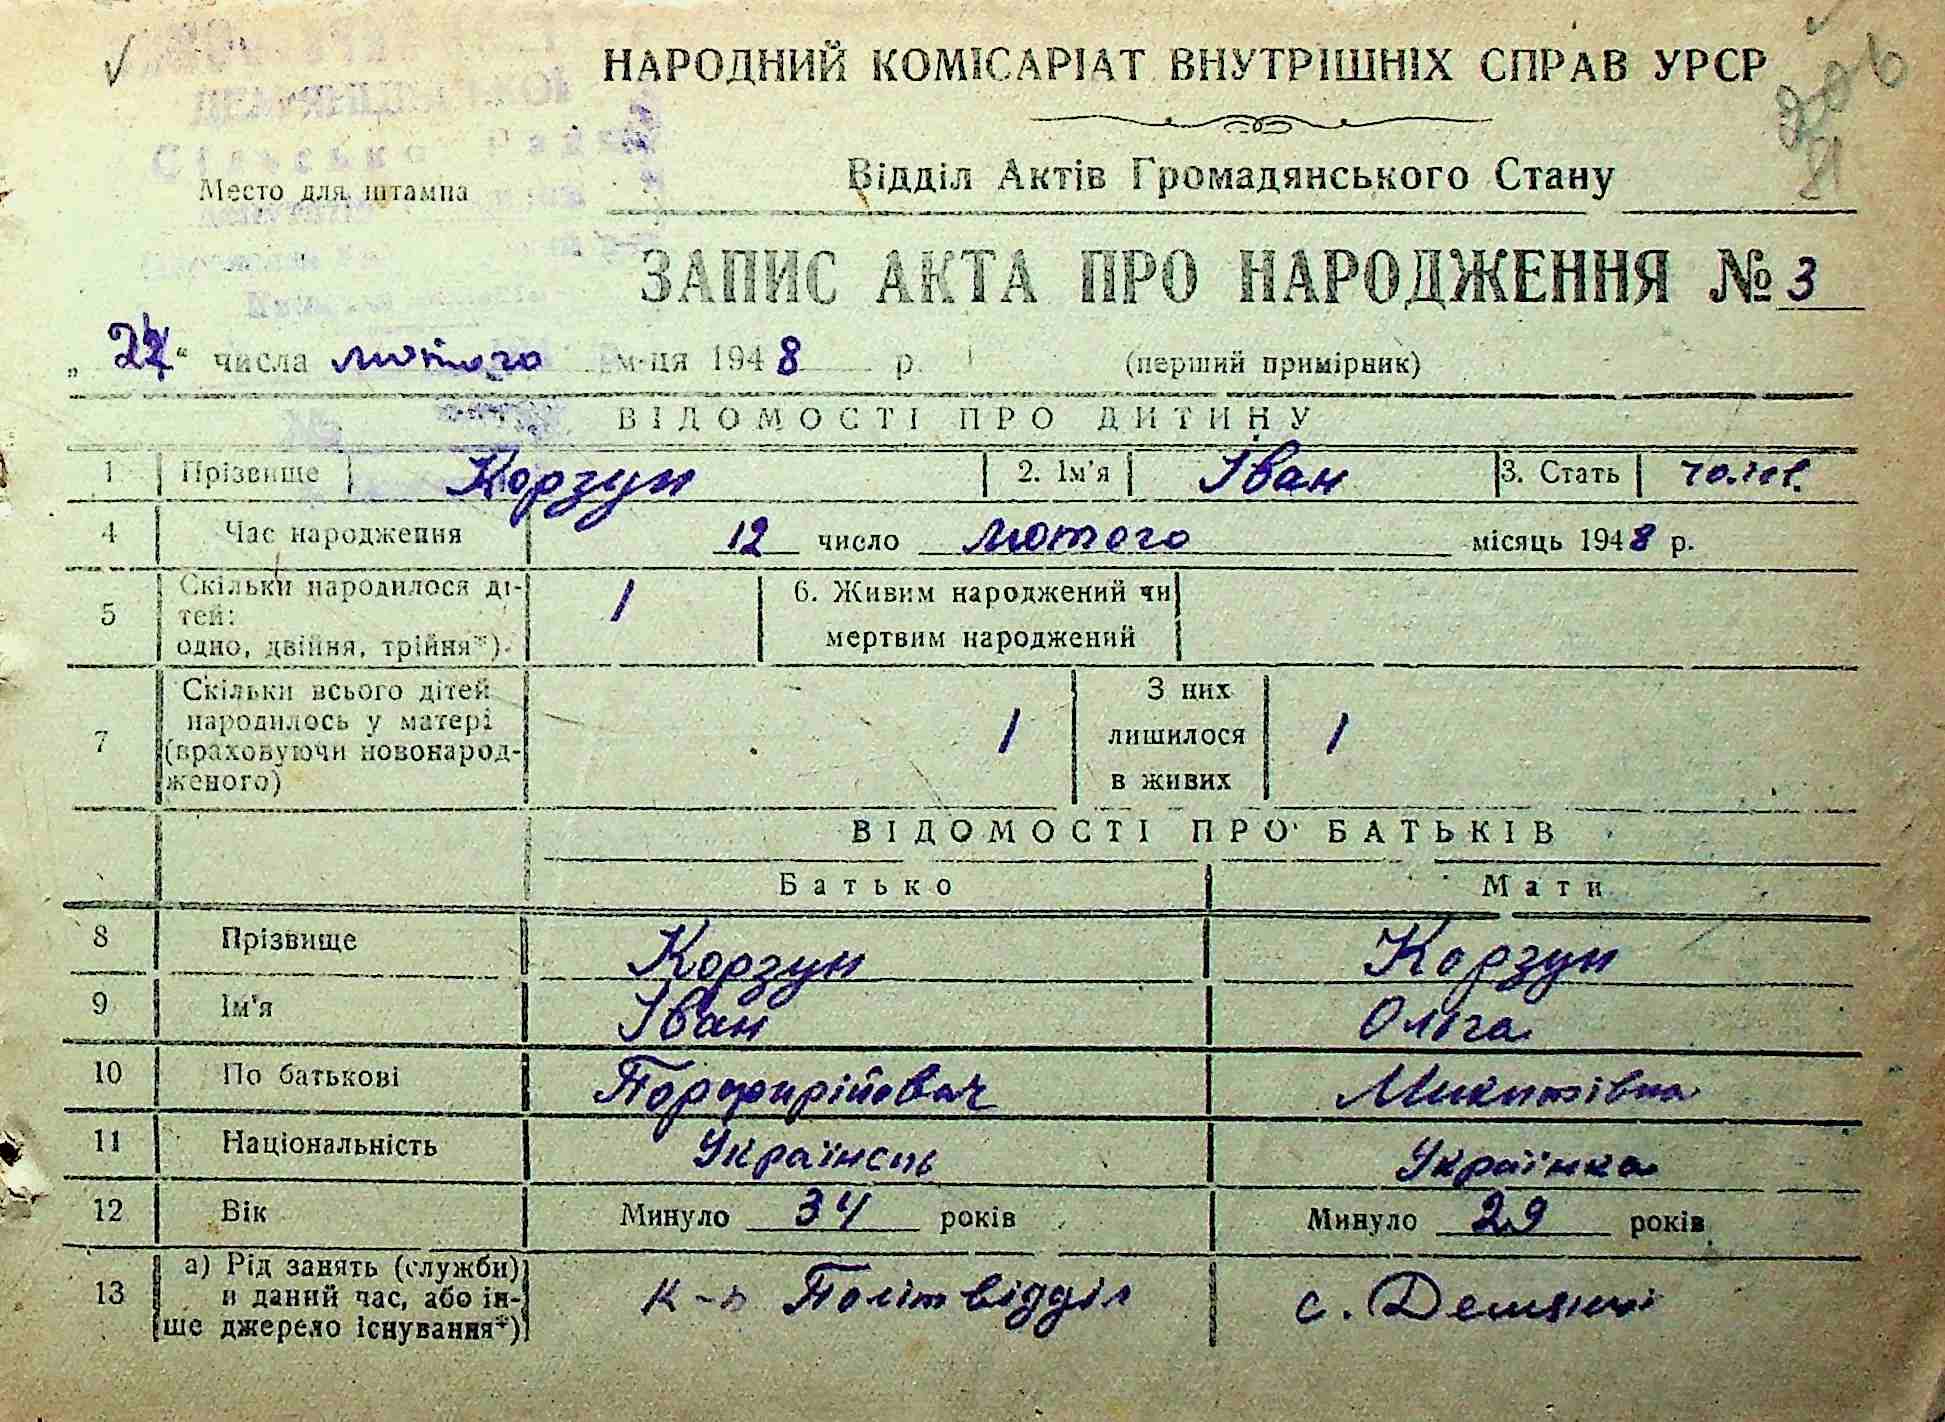 НАРОДНИЙ КОМІСАРІАТ ВНУТРІШНІХ СПРАВ УРСР
Відділ Актів Громадянського Стану
Место для штампа
ЗАПИС АКТА ПРО НАРОДЖЕННЯ № 3
числа лютого м-ця 1948 р. (перший примірник)
ВІДОМОСТІ ПРО ДИТИНУ
1 Прізвище Корзун 2. Ім'я Іван 3. Стать чолов.
4 Час народження 12 число лютого місяць 1948 р.
5 Скільки народилося ді-
тей:
одно, двійня, трійня*). 1 6. Живим народжений чи
мертвим народжений
7 Скільки всього дітей
народилось у матері
(враховуючи новонарод-
женого) 1 З них
лишилося
в живих 1
ВІДОМОСТІ ПРО БАТЬКІВ
Батько Мати
8 Прізвище Корзун Корзун
9 Ім'я Іван Ольга
10 По батькові Порфирійович Микитівна
11 Національність Українець Українка
12 Вік Минуло 34 років Минуло 29 років
13 а) Рід занять (служби)
в даний час, або ін-
ше джерело існування*) к-п Політвідділ с. Демянці